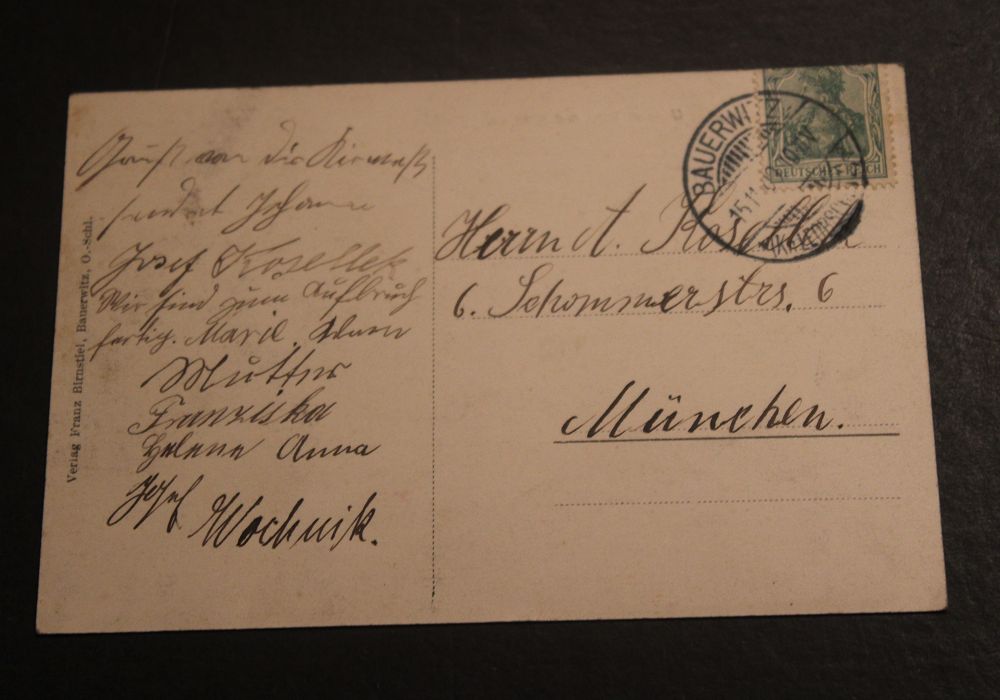 Gruß von der Kirmeß
sendet Johann
Josef Kosellek
Wir sind zum Aufbruch
fertig. Marie.
Mutter
Franziska
Helene Anna
Josef Wochnik.
Verlag Franz Birnstiel, Bauerwitz, O.-Schl.
BAUERWITZ
15.11
DEUTSCHES REICH
Herrn A. Kosellek
6. Schommerstrs. 6
München.